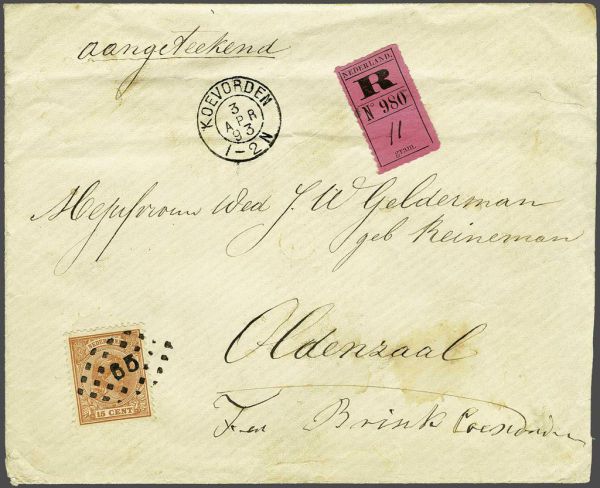 aangeteekend
KOEVORDEN
3
APR
93
1-2N
NEDERLAND.
R
Nº 980
11
gram.
Mejufvrouw Wed J. W Gelderman
geb Reineman
Oldenzaal
NEDERLAND
65
15 CENT
Brink Coevorden